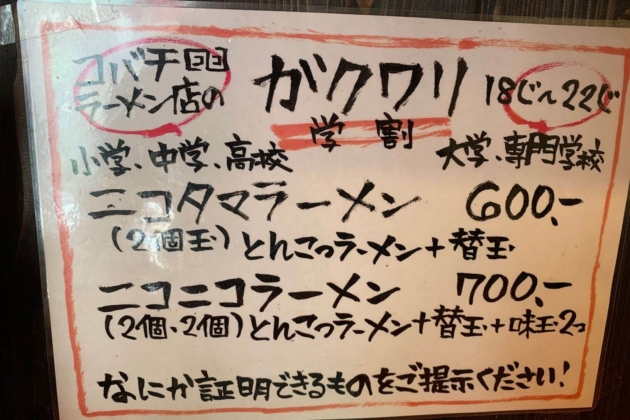 コバチ回回
ラーメン店の
ガクワリ
学割
18じ〜22じ
小学、中学、高校
大学、専門学校
ニコタマラーメン 600.-
(2個玉)とんこつラーメン+替玉
ニコニコラーメン 700.-
(2個・2個)とんこつラーメン+替玉+味玉2つ
なにか証明できるものをご提示ください!